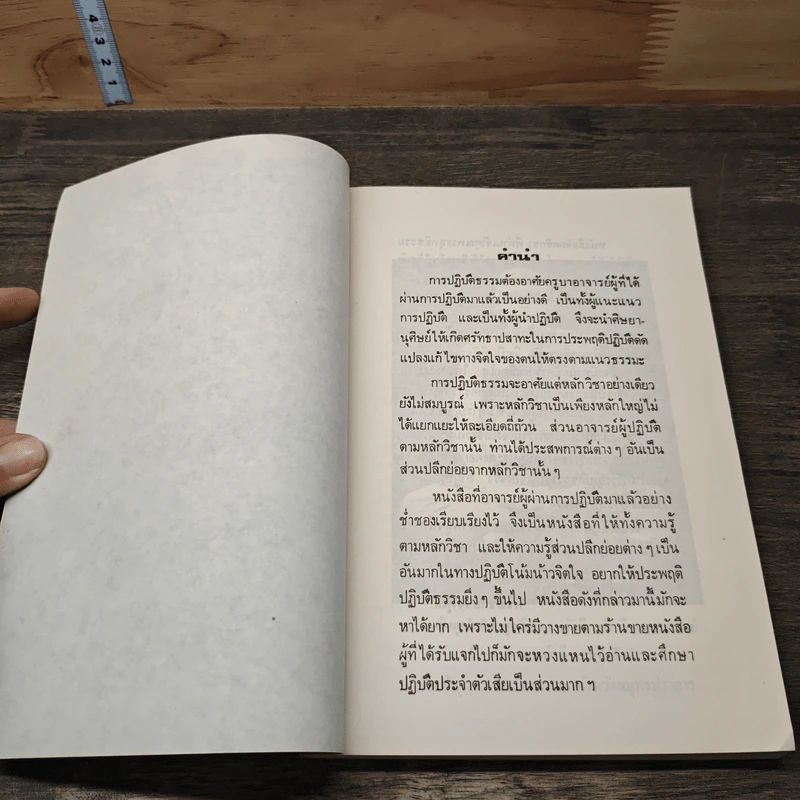 4
3
2
1
คำนำ
การปฏิบัติธรรมต้องอาศัยครูบาอาจารย์ผู้ที่ได้
ผ่านการปฏิบัติมาแล้วเป็นอย่างดี เป็นทั้งผู้แนะแนว
การปฏิบัติ และเป็นทั้งผู้นำปฏิบัติ จึงจะนำศิษยา-
นุศิษย์ให้เกิดศรัทธาปสาทะในการประพฤติปฏิบัติดัด
แปลงแก้ไขทางจิตใจของตนให้ตรงตามแนวธรรมะ
การปฏิบัติธรรมจะอาศัยแต่หลักวิชาอย่างเดียว
ยังไม่สมบูรณ์ เพราะหลักวิชาเป็นเพียงหลักใหญ่ไม่
ได้แยกแยะให้ละเอียดถี่ถ้วน ส่วนอาจารย์ผู้ปฏิบัติ
ตามหลักวิชานั้น ท่านได้ประสพการณ์ต่าง ๆ อันเป็น
ส่วนปลีกย่อยจากหลักวิชานั้น ๆ
หนังสือที่อาจารย์ผู้ผ่านการปฏิบัติมาแล้วอย่าง
ช่ำชองเรียบเรียงไว้ จึงเป็นหนังสือที่ให้ทั้งความรู้
ตามหลักวิชา และให้ความรู้ส่วนปลีกย่อยต่าง ๆ เป็น
อันมากในทางปฏิบัติโน้มน้าวจิตใจ อยากให้ประพฤติ
ปฏิบัติธรรมยิ่ง ๆ ขึ้นไป หนังสือดังที่กล่าวมานี้มักจะ
หาได้ยาก เพราะไม่ใคร่มีวางขายตามร้านขายหนังสือ
ผู้ที่ได้รับแจกไปก็มักจะหวงแหนไว้อ่านและศึกษา
ปฏิบัติประจำตัวเสียเป็นส่วนมาก ฯ